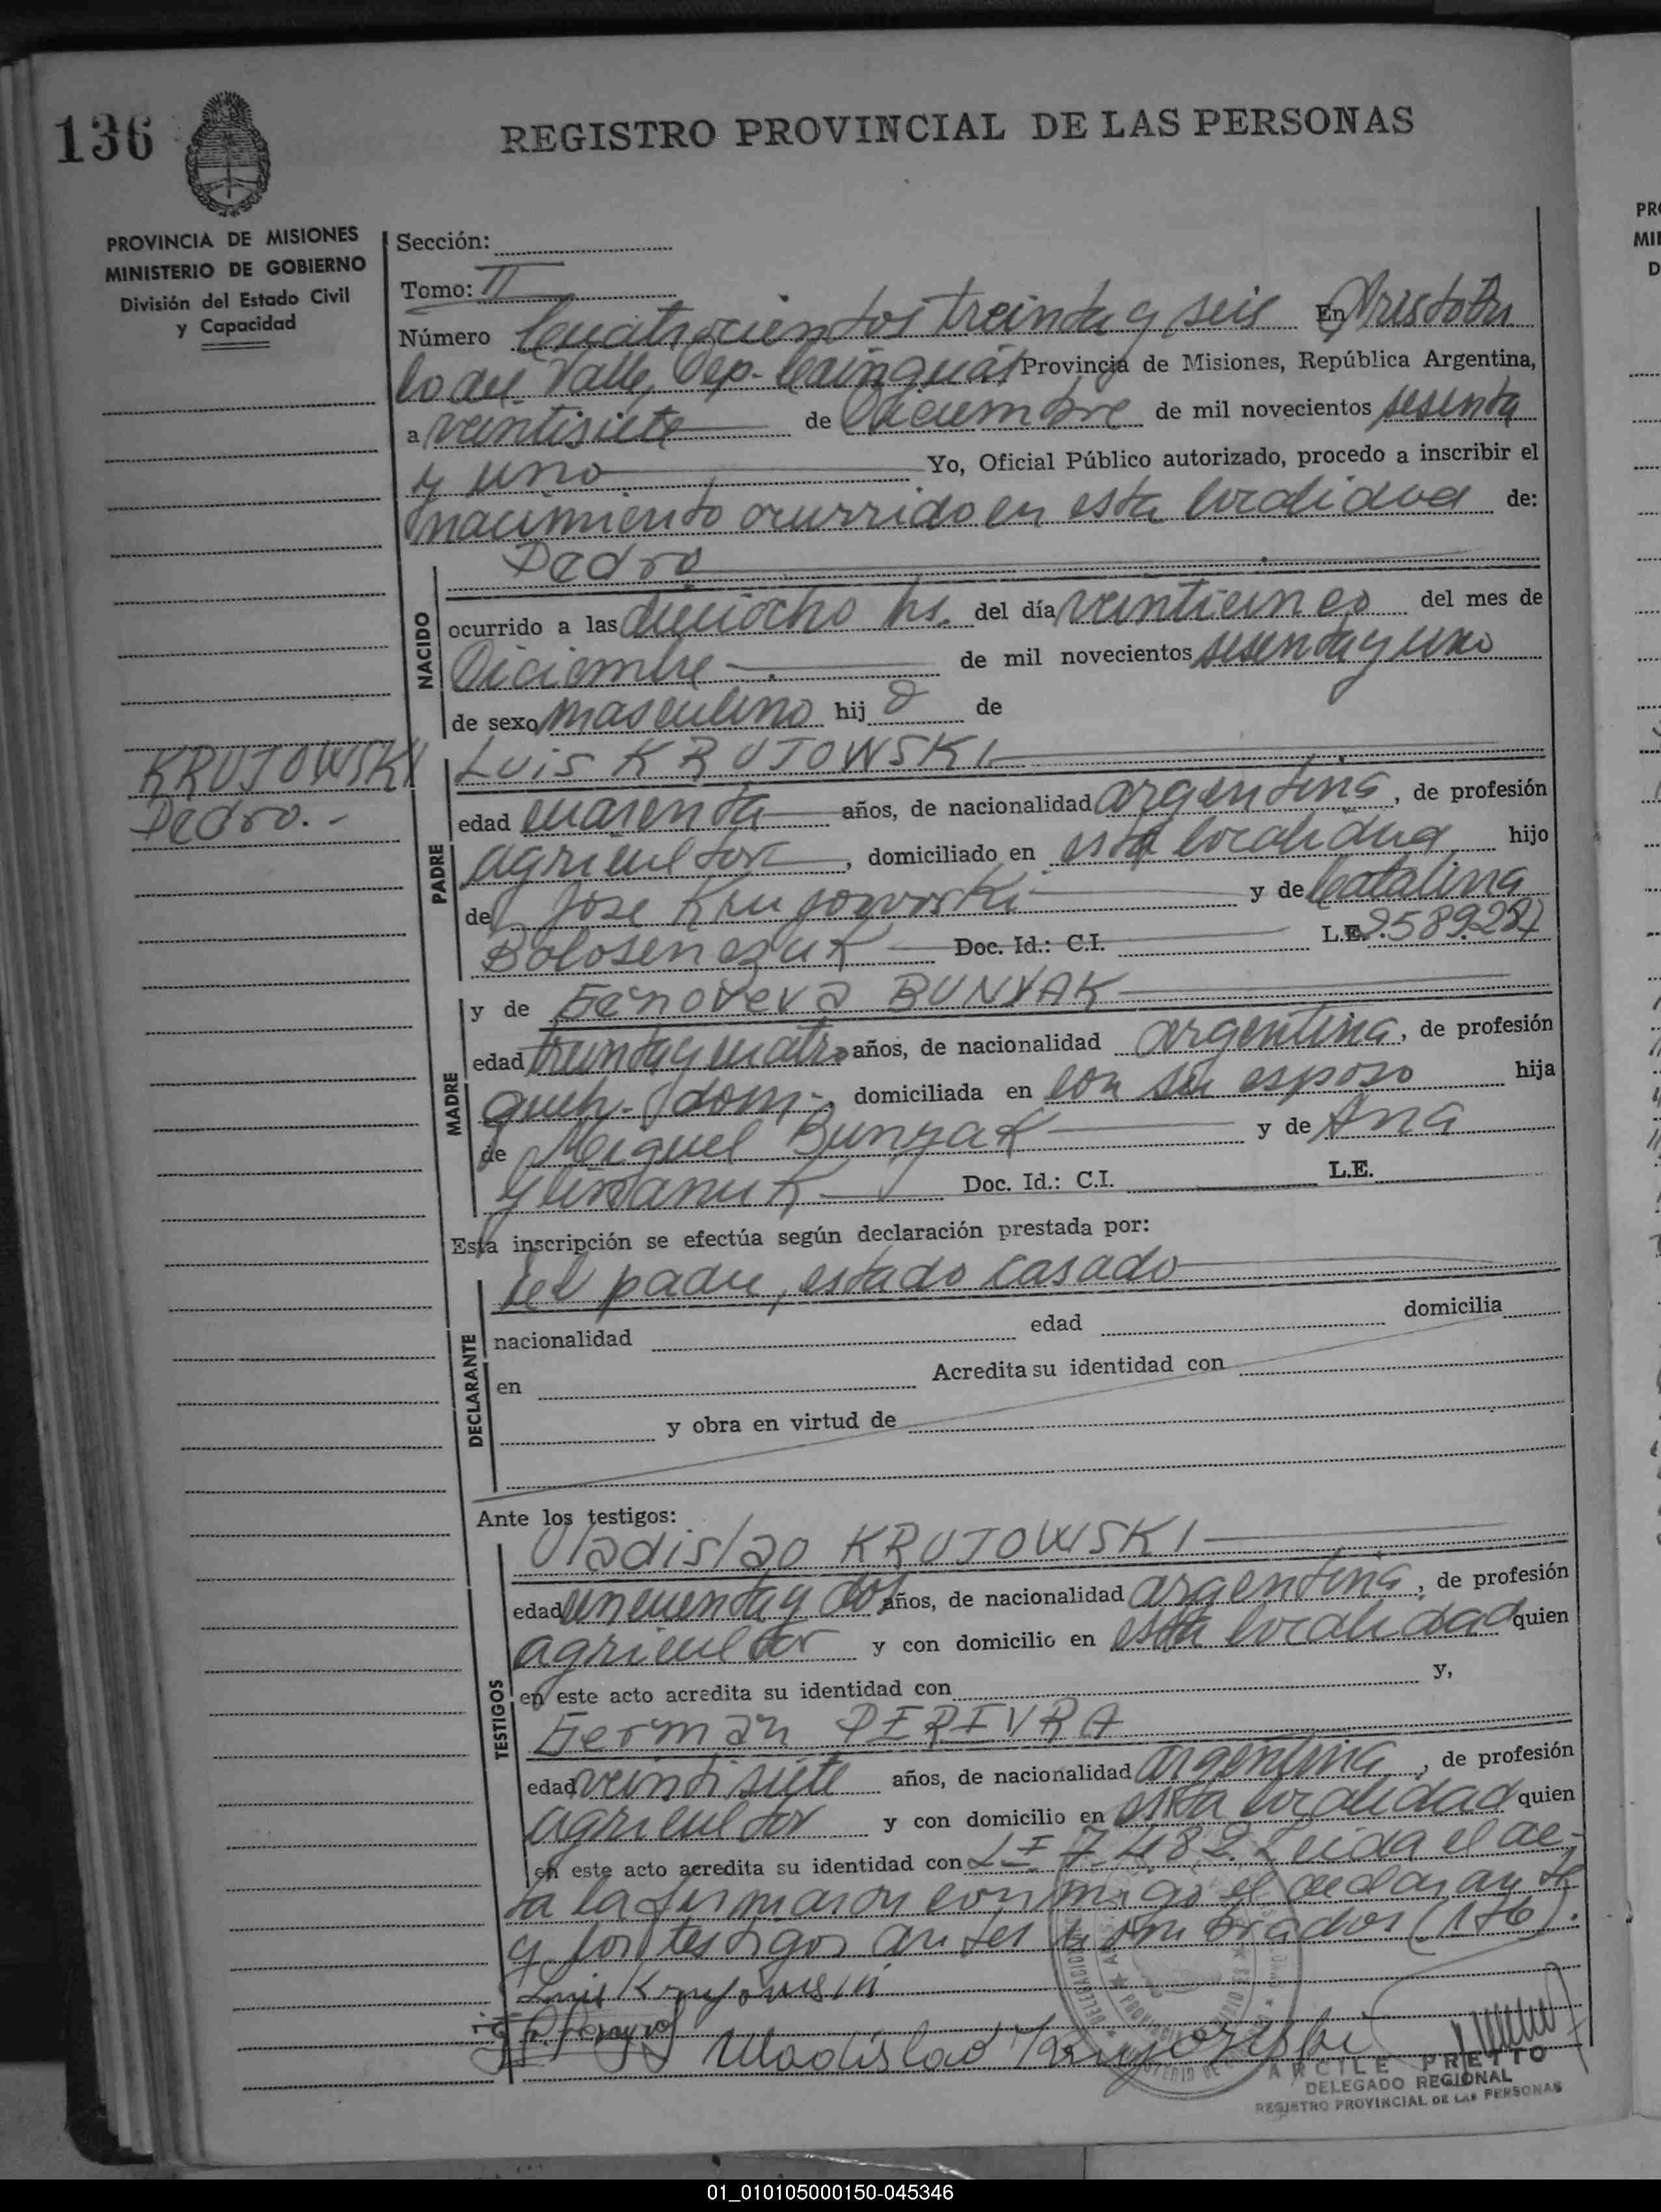 136
REGISTRO PROVINCIAL DE LAS PERSONAS
PROVINCIA DE MISIONES
MINISTERIO DE GOBIERNO
División del Estado Civil
y Capacidad
Sección:
Tomo: II
Número Cuatrocientos treinta y seis En Aristobu
lo del Valle, Dep. Cainguás Provincia de Misiones, República Argentina,
a veintisiete de Diciembre de mil novecientos sesenta
y uno Yo, Oficial Público autorizado, procedo a inscribir el
nacimiento ocurrido en esta localidad de:
Pedro
NACIDO
ocurrido a las dieciocho hs. del día veinticinco del mes de
Diciembre de mil novecientos sesenta y uno
de sexo masculino hij o de
KRUJOWSKI
Pedro.-
PADRE
Luis KRUJOWSKI
edad cuarenta años, de nacionalidad argentina, de profesión
agricultor, domiciliado en esta localidad hijo
de Jose Krujowski y de Catalina
Bolosenczuk Doc. Id.: C.I. L.E.
MADRE
y de Genoveva BUNYAK
edad treinta y cuatro años, de nacionalidad argentina, de profesión
queh. dom., domiciliada en con su esposo hija
de Miguel Bunyak y de Ana
Doc. Id.: C.I. L.E.
Esta inscripción se efectúa según declaración prestada por:
DECLARANTE
del padre, estado casado
nacionalidad edad domicilia
en Acredita su identidad con
y obra en virtud de
Ante los testigos:
TESTIGOS
Vladislao KRUJOWSKI
edad cincuenta y dos años, de nacionalidad argentina, de profesión
agricultor y con domicilio en esta localidad quien
en este acto acredita su identidad con y,
German
edad veintisiete años, de nacionalidad argentina, de profesión
agricultor y con domicilio en esta localidad quien
en este acto acredita su identidad con Leida el ac-
ta la firmaron conmigo el declarante
y los testigos antes nombrados (176).
Luis Krujowski
Wladislao
ARCILE PRETTO
DELEGADO REGIONAL
REGISTRO PROVINCIAL DE LAS PERSONAS
01_010105000150-045346